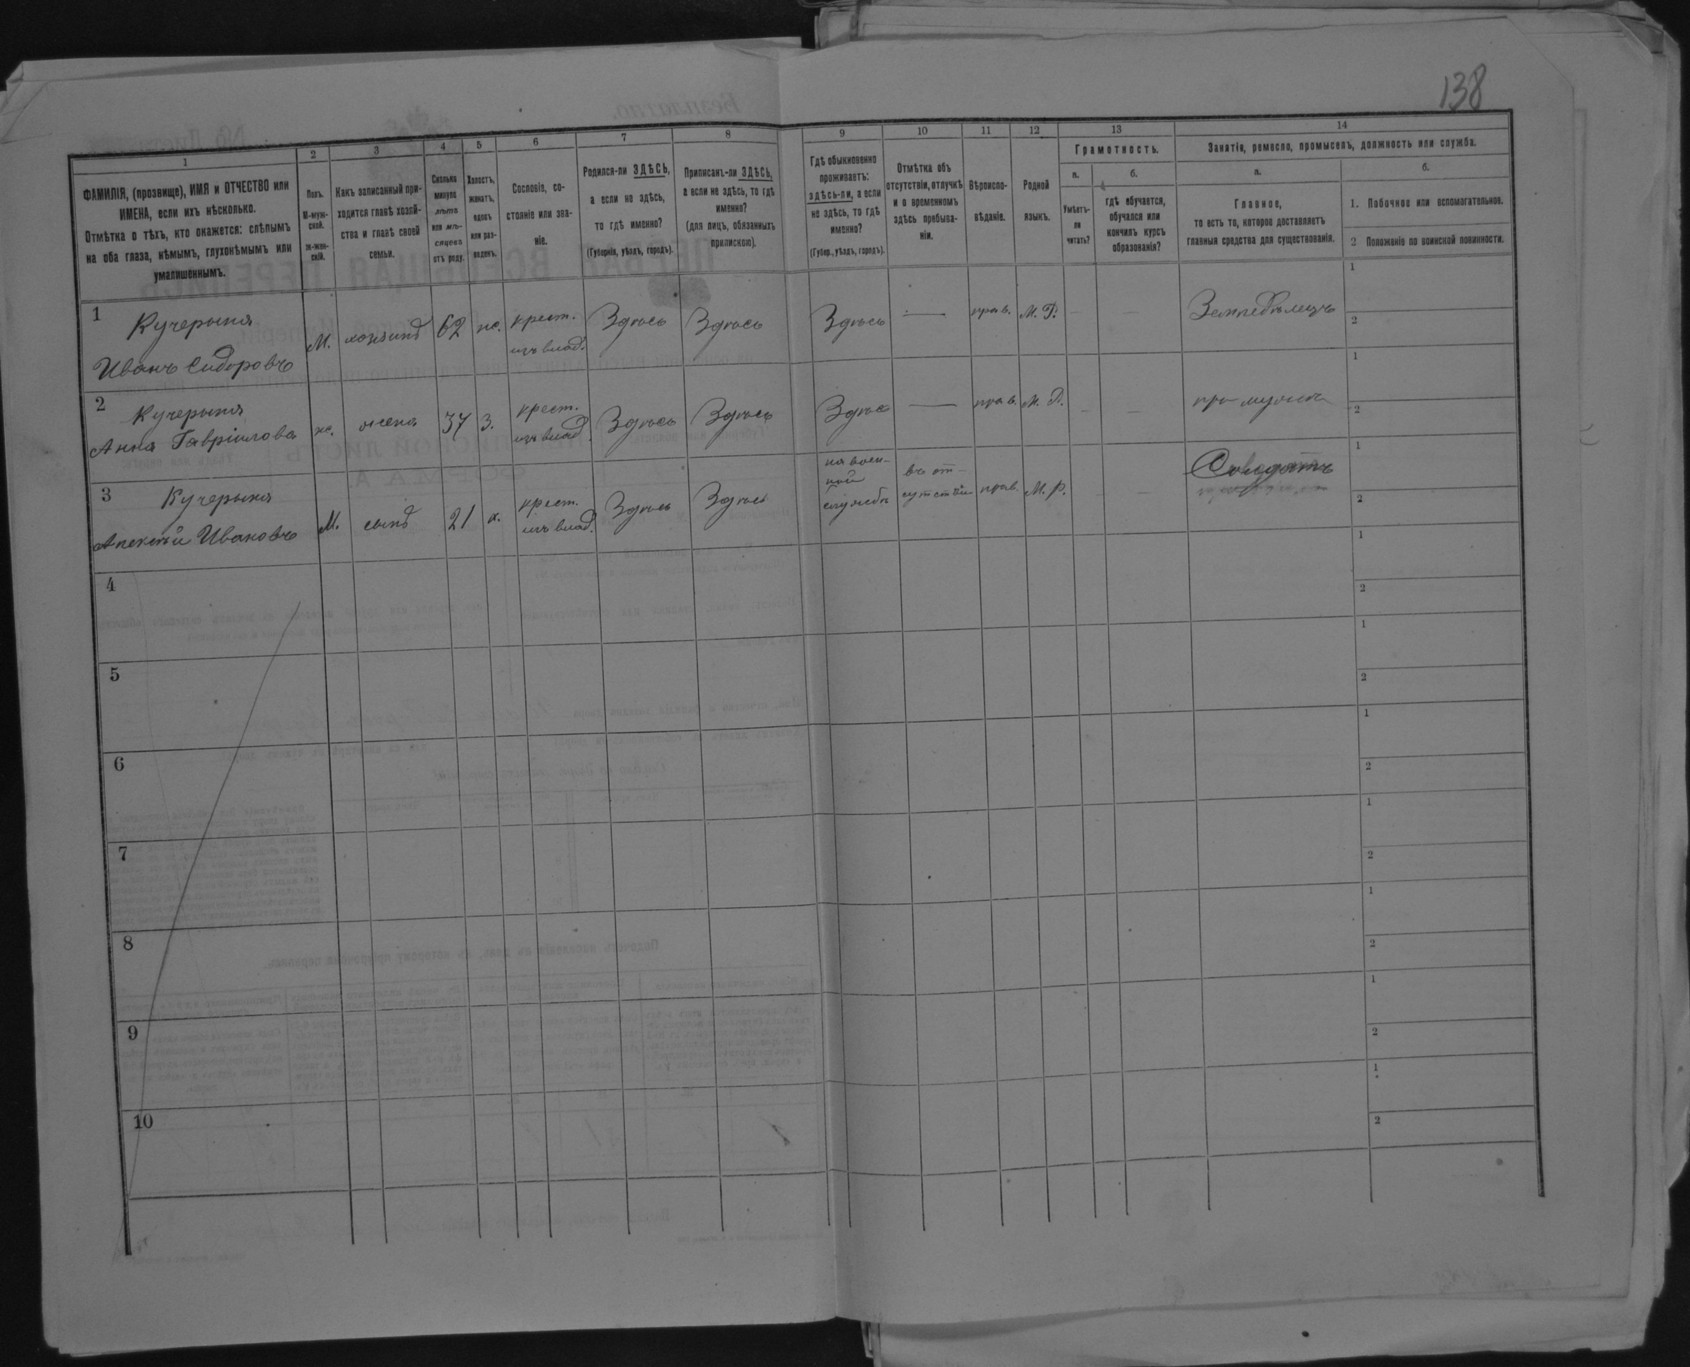 138
1
2
3
4
5
6
7
8
9
10
11
12
13
14
ФАМИЛІЯ, (прозвище), ИМЯ и ОТЧЕСТВО или
ИМЕНА, если ихъ нѣсколько.
Отмѣтка о тѣхъ, кто окажется: слѣпымъ
на оба глаза, нѣмымъ, глухонѣмымъ или
умалишеннымъ.
Полъ.
М-муж-
ской.
Ж-жен-
скій.
Какъ записанный при-
ходится главѣ хозяй-
ства и главѣ своей
семьи.
Сколько
минуло
лѣтъ
или мѣ-
сяцевъ
отъ роду.
Холостъ,
женатъ,
вдовъ
или раз-
веденъ.
Сословіе, со-
стояніе или зва-
ніе.
Родился-ли ЗДѢСЬ,
а если не здѣсь,
то гдѣ именно?
(Губернія, уѣздъ, городъ).
Приписанъ-ли ЗДѢСЬ,
а если не здѣсь, то гдѣ
именно?
(для лицъ, обязанныхъ
припискою).
Гдѣ обыкновенно
проживаетъ:
здѣсь-ли, а если
не здѣсь, то гдѣ
именно?
(Губер., уѣздъ, городъ).
Отмѣтка объ
отсутствіи, отлучкѣ
и о временномъ
здѣсь пребыва-
ніи.
Вѣроиспо-
вѣданіе.
Родной
языкъ.
Грамотность.
а.
Умѣетъ-
ли
читать?
б.
гдѣ обучается,
обучался или
кончилъ курсъ
образованія?
Занятіе, ремесло, промыселъ, должность или служба.
а.
Главное,
то есть то, которое доставляетъ
главныя средства для существованія.
б.
1. Побочное или вспомогательное.
2 Положеніе по воинской повинности.
1
Кучерына
Иванъ Сидоровъ
М.
хозяинъ
62
же.
крест.
изъ влад.
Здѣсь
Здѣсь
Здѣсь
—
прав.
М. Р.
–
–
Земледѣлецъ
1
2
2
Кучерына
Анна Гавріилова
ж.
жена
37
З.
крест.
изъ влад.
Здѣсь
Здѣсь
Здѣсь
—
прав.
М. Р.
–
–
при мужѣ
1
2
3
Кучерына
Алексѣй Ивановъ
М.
сынъ
21
х.
крест.
изъ влад.
Здѣсь
Здѣсь
на воен-
ной
службѣ
въ от-
сутствіи
прав.
М. р.
–
–
Солдатъ
1
2
4
1
2
5
1
2
6
1
2
7
1
2
8
1
2
9
1
2
10
1
2